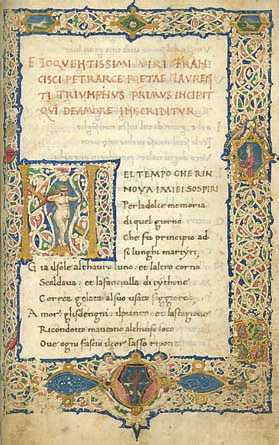 ELOQVENTISSIMI VIRI FRAN
CISCI PETRARCE POETAE LAVREN
TI TRIVMPHVS PRIMVS INCIPIT
QVI DE AMORE INSCRIBITVR
EL TEMPO CHE RIN
NOVA I MIEI SOSPIRI
Per la dolce memoria
di quel giorno
Che fu principio ad
si lunghi martyri,
Gia il sole al thauro luno: et laltro corno
Scaldaua: et la fanciulla di tythone
Correa gelata al suo usato soggiorno
Amor: gli sdegni: el pianto: et la stagione
Ricondotto maueano al chiuso loco
Oue ogni fascio il cor lasso ripone